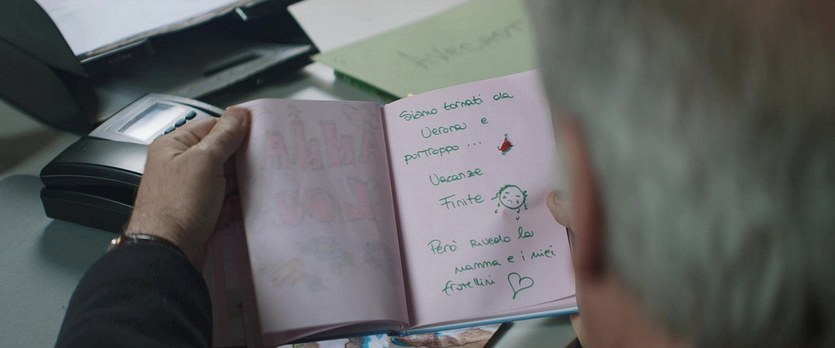 Siamo tornati da
Verona e
portroppo ...
Vacanze
Finite
Però rivedo la
mamma e i miei
fratellini